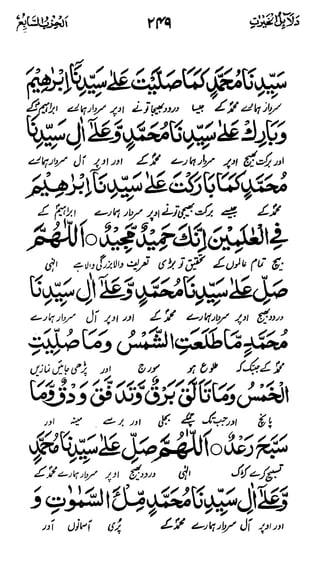 دلائل الخيرات ٢٤٩ الحزب السابع
سَيِّدِنَا مُحَمَّدٍ كَمَا صَلَّيْتَ عَلٰى سَيِّدِنَا اِبْرٰهِيْمَ
سردار ہمارے محمدؐ کے جیسا درود بھیجا تو نے اوپر سردار ہمارے ابراہیمؑ کے
وَبَارِكْ عَلٰى سَيِّدِنَا مُحَمَّدٍ وَّعَلٰٓى اٰلِ سَيِّدِنَا
اور برکت بھیج اوپر سردار ہمارے محمدؐ کے اور اوپر آل سردار ہمارے
مُحَمَّدٍ كَمَا بَارَكْتَ عَلٰى سَيِّدِنَآ اِبْرٰهِيْمَ
محمدؐ کے جیسے برکت بھیجی تو نے اوپر سردار ہمارے ابراہیمؑ کے
فِي الْعٰلَمِيْنَ اِنَّكَ حَمِيْدٌ مَّجِيْدٌ ○ اَللّٰهُمَّ
بیچ تمام عالموں کے تحقیق تو بڑی تعریف والا بزرگی والا ہے الٰہی
صَلِّ عَلٰى سَيِّدِنَا مُحَمَّدٍ وَّعَلٰٓى اٰلِ سَيِّدِنَا
درود بھیج اوپر سردار ہمارے محمدؐ کے اور اوپر آل سردار ہمارے
مُحَمَّدٍ مَّا طَلَعَتِ الشَّمْسُ وَمَا صُلِّيَتِ
محمدؐ کے جبتک کہ طلوع ہو سورج اور پڑھی جائیں نمازیں
الْخَمْسُ وَمَا تَاَلَّقَ بَرْقٌ وَّتَدَفَّقَ وَدْقٌ وَّمَا
پانچ اور جب تک چمکے بجلی اور برسے مینہ اور
سَبَّحَ رَعْدٌ ○ اَللّٰهُمَّ صَلِّ عَلٰى سَيِّدِنَا مُحَمَّدٍ
تسبیح کرے کڑک الٰہی درود بھیج اوپر سردار ہمارے محمدؐ کے
وَّعَلٰٓى اٰلِ سَيِّدِنَا مُحَمَّدٍ مِّلْءَ السَّمٰوٰتِ وَ
اور اوپر آل سردار ہمارے محمدؐ کے پُری آسمانوں اور